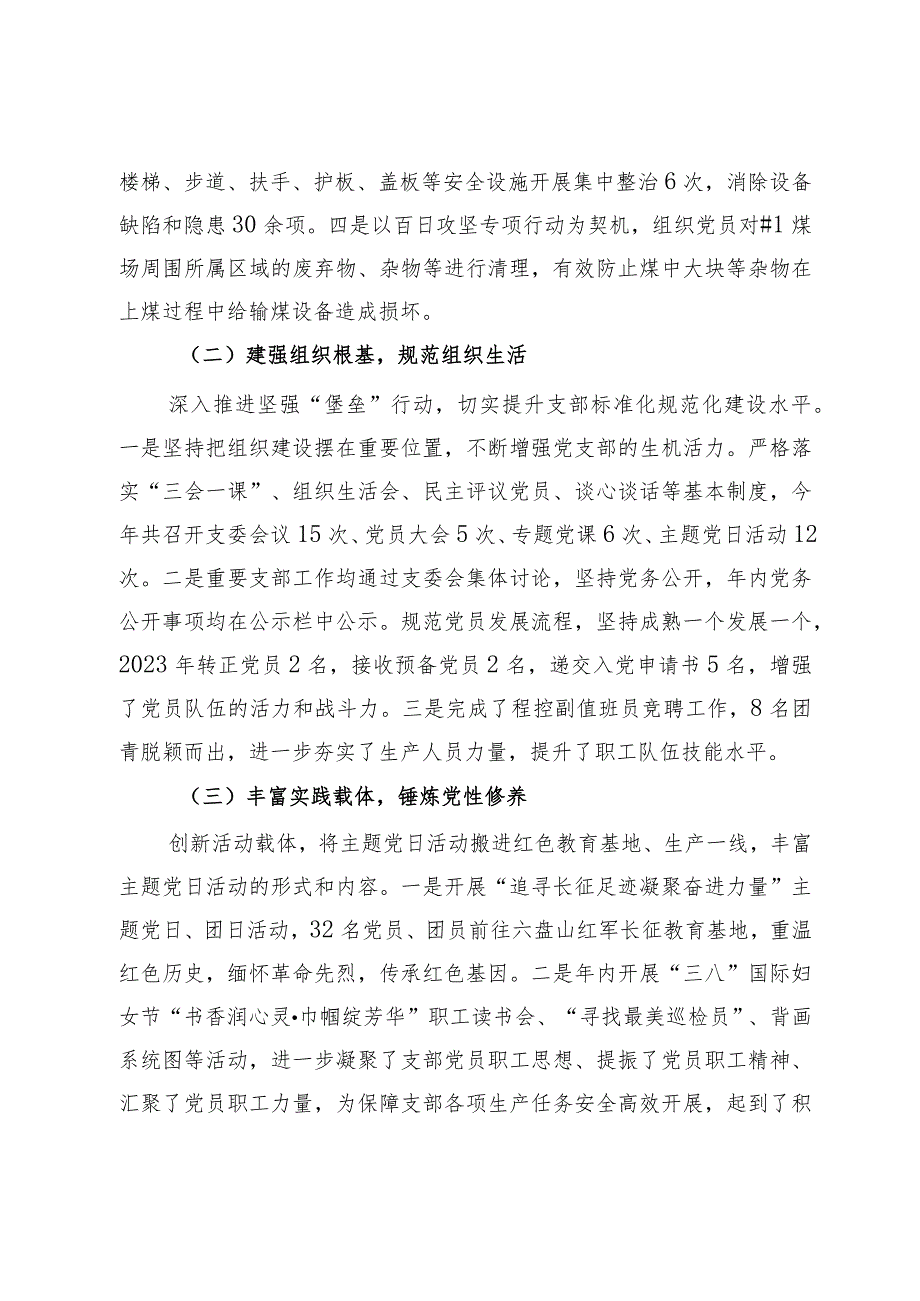 楼梯、步道、扶手、护板、盖板等安全设施开展集中整治 6 次，消除设备
缺陷和隐患 30 余项。四是以百日攻坚专项行动为契机，组织党员对#1 煤
场周围所属区域的废弃物、杂物等进行清理，有效防止煤中大块等杂物在
上煤过程中给输煤设备造成损坏。
（二）建强组织根基，规范组织生活
深入推进坚强“堡垒”行动，切实提升支部标准化规范化建设水平。
一是坚持把组织建设摆在重要位置，不断增强党支部的生机活力。严格落
实“三会一课”、组织生活会、民主评议党员、谈心谈话等基本制度，今
年共召开支委会议 15 次、党员大会 5 次、专题党课 6 次、主题党日活动 12
次。二是重要支部工作均通过支委会集体讨论，坚持党务公开，年内党务
公开事项均在公示栏中公示。规范党员发展流程，坚持成熟一个发展一个，
2023 年转正党员 2 名，接收预备党员 2 名，递交入党申请书 5 名，增强
了党员队伍的活力和战斗力。三是完成了程控副值班员竞聘工作，8 名团
青脱颖而出，进一步夯实了生产人员力量，提升了职工队伍技能水平。
（三）丰富实践载体，锤炼党性修养
创新活动载体，将主题党日活动搬进红色教育基地、生产一线，丰富
主题党日活动的形式和内容。一是开展“追寻长征足迹凝聚奋进力量”主
题党日、团日活动，32 名党员、团员前往六盘山红军长征教育基地，重温
红色历史，缅怀革命先烈，传承红色基因。二是年内开展“三八”国际妇
女节“书香润心灵•巾帼绽芳华”职工读书会、“寻找最美巡检员”、背画
系统图等活动，进一步凝聚了支部党员职工思想、提振了党员职工精神、
汇聚了党员职工力量，为保障支部各项生产任务安全高效开展，起到了积